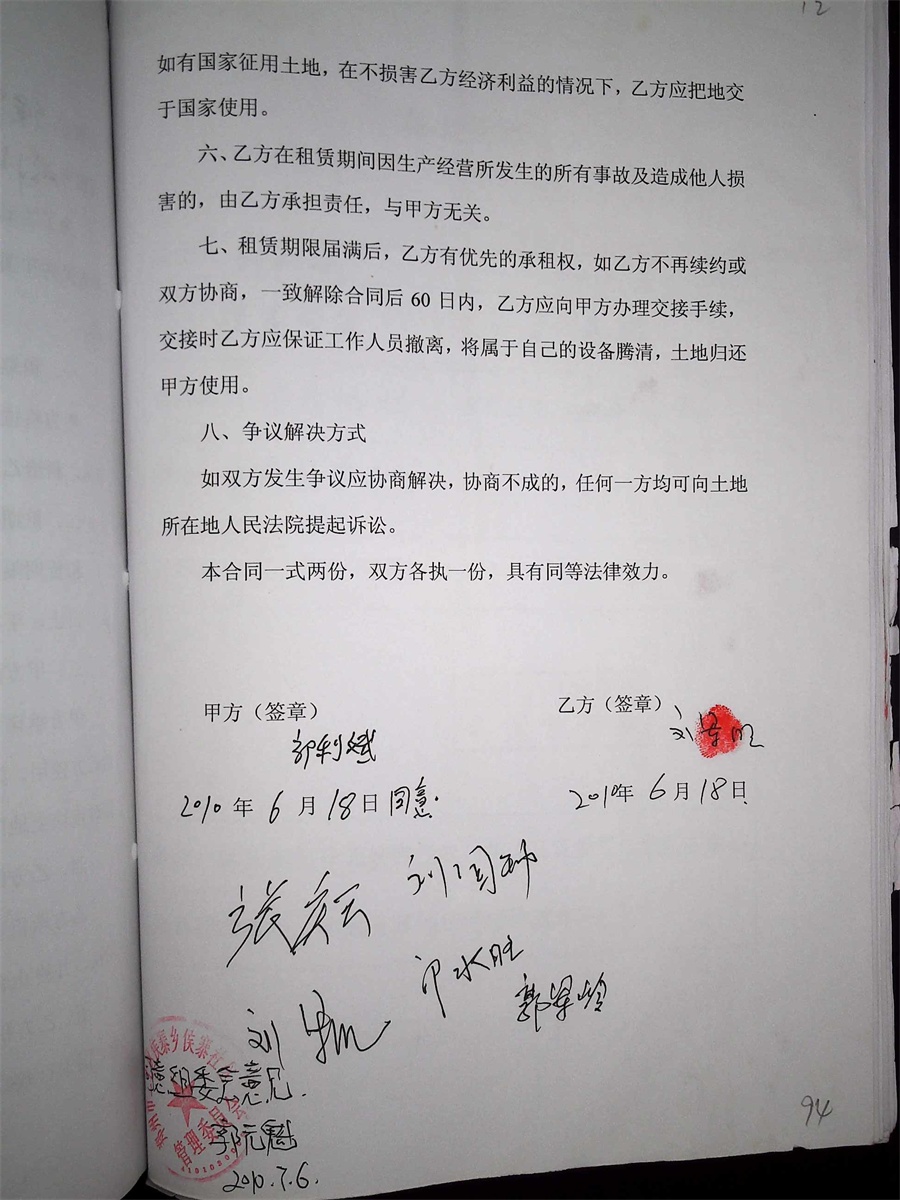 12
如有国家征用土地，在不损害乙方经济利益的情况下，乙方应把地交
于国家使用。
六、乙方在租赁期间因生产经营所发生的所有事故及造成他人损
害的，由乙方承担责任，与甲方无关。
七、租赁期限届满后，乙方有优先的承租权，如乙方不再续约或
双方协商，一致解除合同后 60 日内，乙方应向甲方办理交接手续，
交接时乙方应保证工作人员撤离，将属于自己的设备腾清，土地归还
甲方使用。
八、争议解决方式
如双方发生争议应协商解决，协商不成的，任何一方均可向土地
所在地人民法院提起诉讼。
本合同一式两份，双方各执一份，具有同等法律效力。
甲方（签章） 乙方（签章）
郭利斌 刘
2010 年 6 月 18 日 同意. 2010年 6 月 18 日
张庆云 刘国
刘 水旺
郭
组委会意见.
管理委员会
郭元魁
2010.7.6.
94